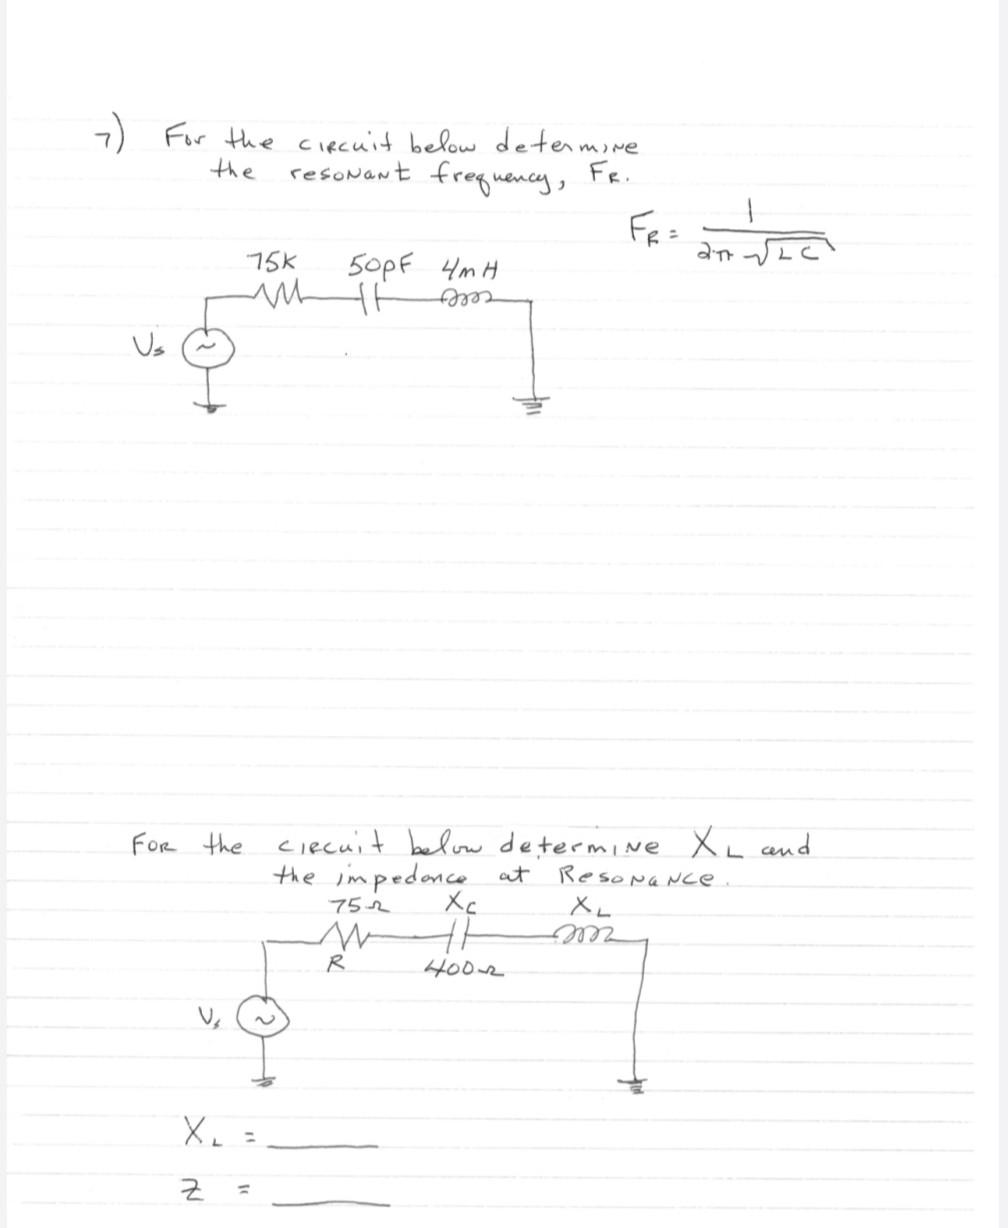 7) For the circuit below determine
the resonant frequency, FR.
FR = 1 / 2π √LC
75K 50pF 4mH
Vs
For the circuit below determine XL and
the impedance at Resonance.
75Ω XC XL
R 400Ω
Vs
XL = ______
Z = ______